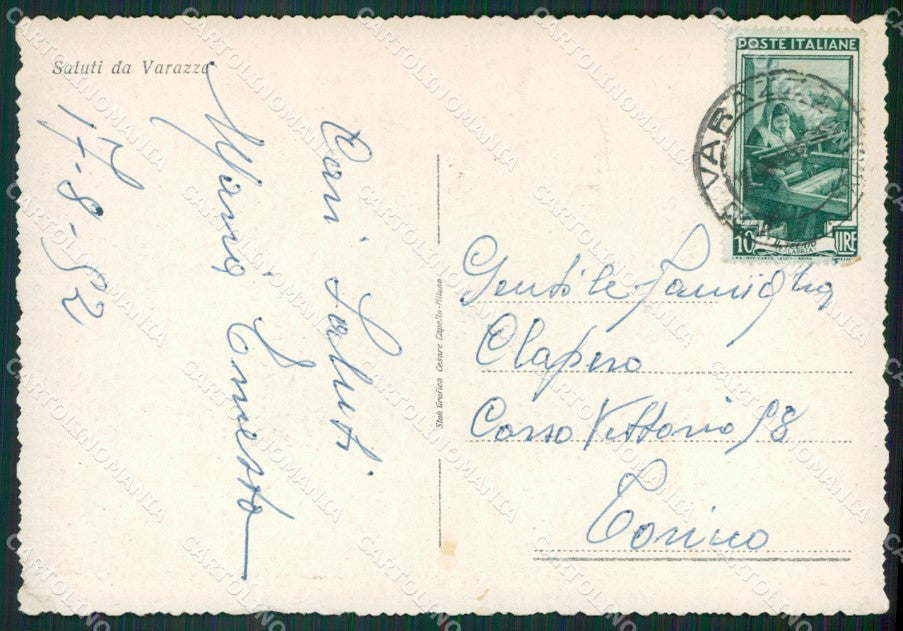 Saluti da Varazze
17-8-52
Cari Saluti
Maria Ernesto
Stab. Grafico Cesare Capello - Milano
POSTE ITALIANE
10 LIRE
VARAZZE
Gentile Famiglia
Clapero
Corso Vittorio 98
Torino
CARTOLINOMANIA